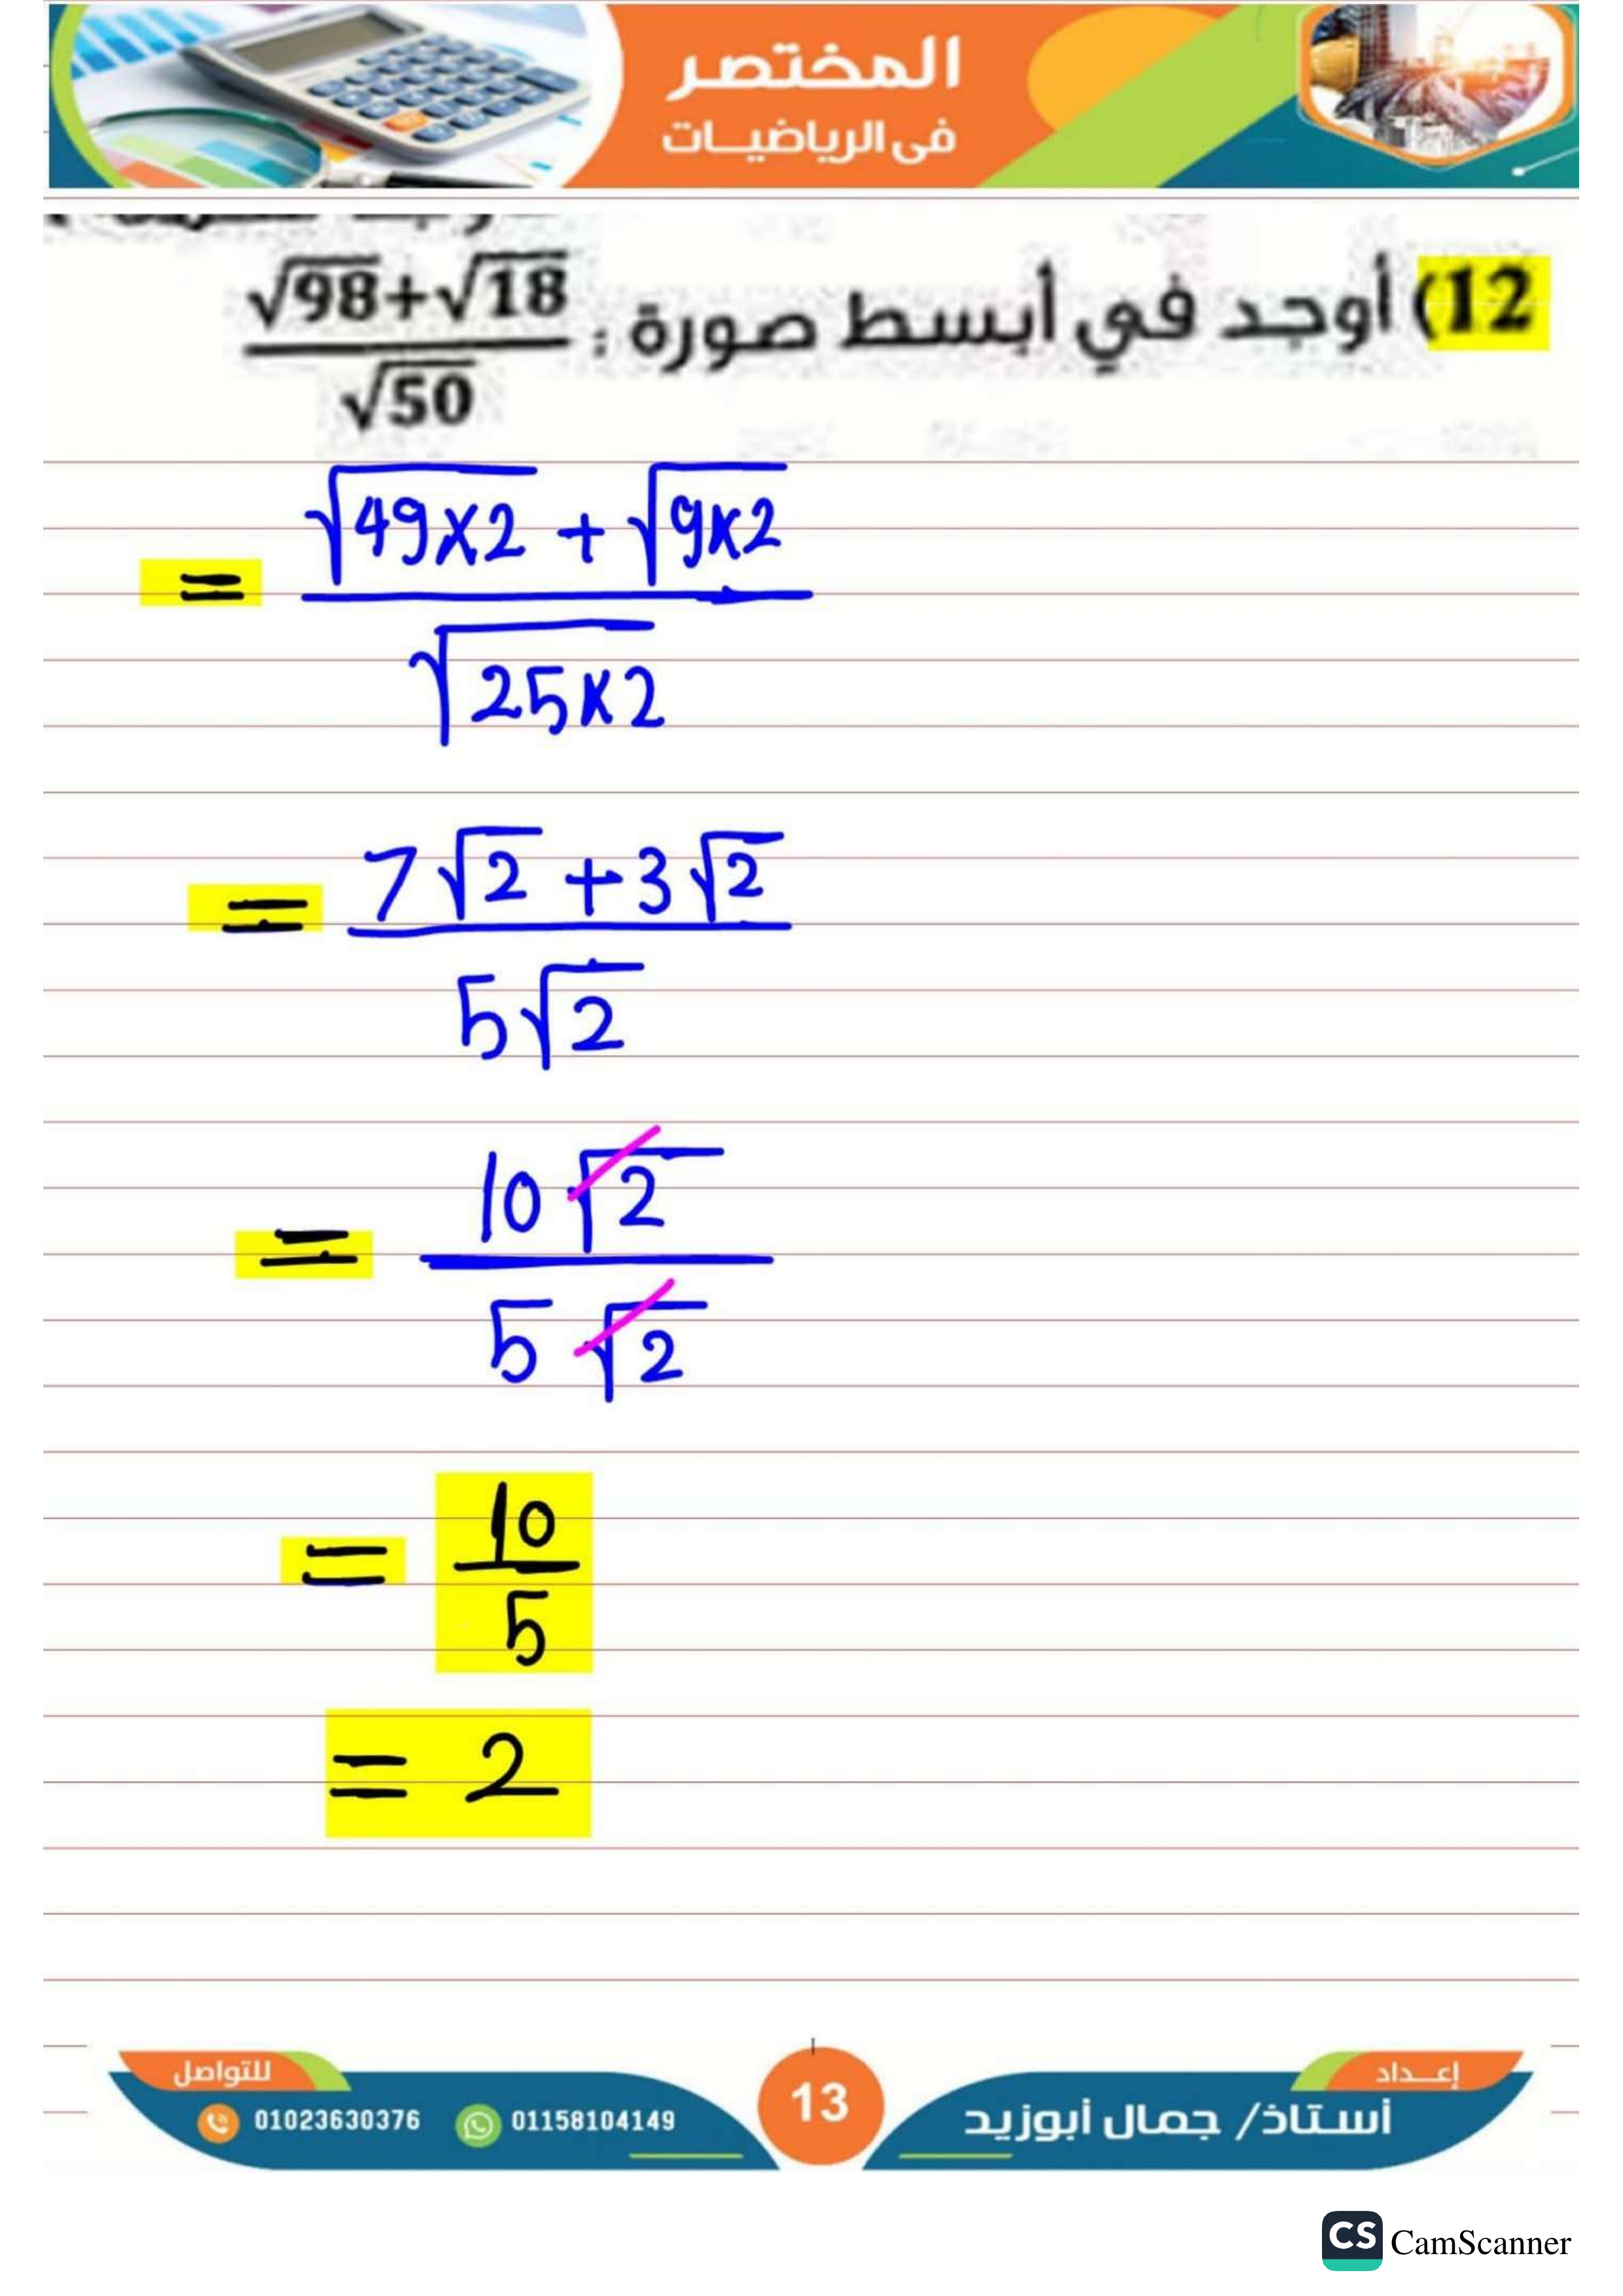 المختصر
فى الرياضيات
12) أوجد في أبسط صورة : (√98+√18)/√50
= (√(49×2) + √(9×2))/√(25×2)
= (7√2 + 3√2)/(5√2)
= (10√2)/(5√2)
= 10/5
= 2
إعداد
أستاذ/ جمال أبوزيد
13
للتواصل
01023630376 01158104149
CS CamScanner